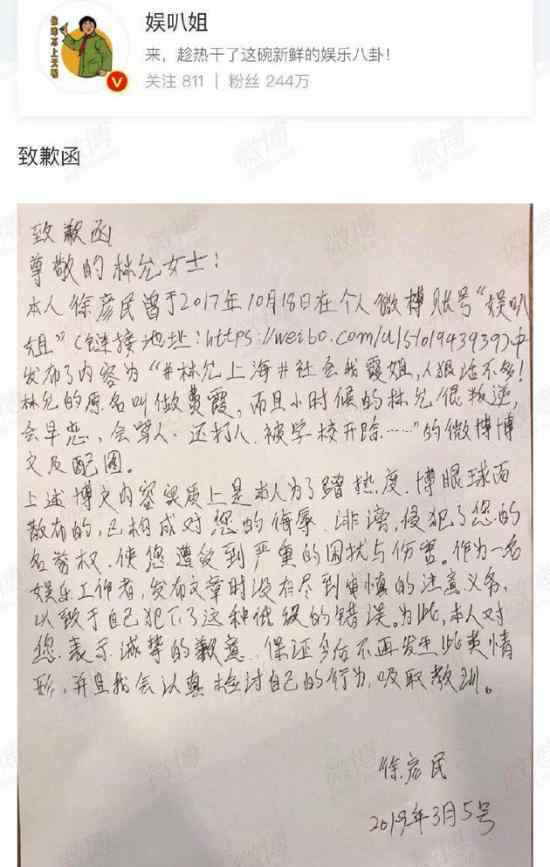 娱叭姐
来，趁热干了这碗新鲜的娱乐八卦！
关注 811 | 粉丝 244万
致歉函
致歉函
尊敬的林允女士：
本人徐彦民曾于2017年10月18日在个人微博账号“娱叭
姐”（链接地址：https://weibo.com/u/5101943939)中
发布了内容为“#林允上海#社会我霞姐，人狠话不多！
林允的原名叫做费霞，而且小时候的林允很叛逆，
会早恋，会骂人、还打人、被学校开除……”的微博博
文及配图。
上述博文内容实质上是本人为了蹭热度、博眼球而
散布的，已构成对您的侮辱、诽谤，侵犯了您的
名誉权，使您遭受到严重的困扰与伤害。作为一名
娱乐工作者，发布文章时没有尽到审慎的注意义务，
以致于自己犯下了这种低级的错误。为此，本人对
您表示诚挚的歉意，保证今后不再发生此类情
形，并且我会认真检讨自己的行为，吸取教训。
徐彦民
2019年3月5号
微博